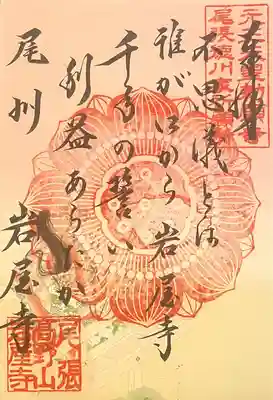 奉拝
不思議とは
誰がいふから 岩屋寺
千手の誓い
利益あらたか
尾州 岩屋寺
尾張
高野山
岩屋寺